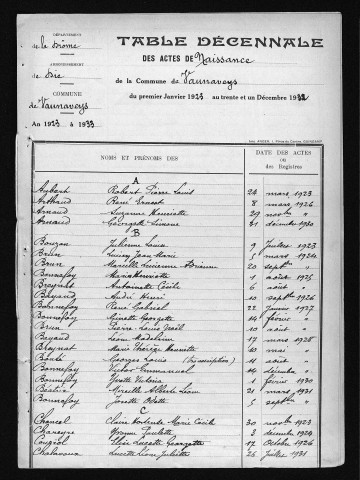 DÉPARTEMENT
de la Drôme
ARRONDISSEMENT
de Die
COMMUNE
de Vaunaveys
An 1923 à 1933
TABLE DÉCENNALE
DES ACTES DE Naissance
de la Commune de Vaunaveys
du premier Janvier 1923 au trente et un Décembre 1932
NOMS ET PRÉNOMS DES
DATE DES ACTES
ou
des Registres
A
Aubert Robert Pierre Louis 24 mars 1923
Arthaud René Ernest 8 mars 1926
Arnaud Suzanne Henriette 29 novbre "
Arnaud Georgette Simone 31 décembre 1930
B
Bouzon Julienne Louise 9 Juillet 1923
Brun Lucien Jean Marie 5 mars 1924
Brun Marcelle Lucienne 20 septbre "
Bonnefoy Marie Henriette 1 août 1925
Breynat Antoinette Cécile 6 août "
Bayard André Henri 10 septbre 1926
Bonnefoy René Gabriel 22 Janvier 1927
Bonnefoy Ginette Georgette 14 février "
Brun Pierre Louis Noël 10 août "
Bayard Léon Madeleine 17 mars 1928
Breynat Marie Thérèse Henriette 10 mai "
Boulé Georges Louis (transcription) 11 août "
Bonnefoy Victor Emmanuel 14 décembre "
Bonnefoy Yvette Victoria 1 février 1930
Mireille Alberte 21 mars 1931
Bonnefoy Josette Odette 5 septbre "
C
Chancel Claire Marie Cécile 30 novbre 1923
Yvonne Paulette 8 décembre 1924
Elise Lucette Georgette 17 Octobre 1926
Chalavoux Lucette Juliette 26 Juillet 1931